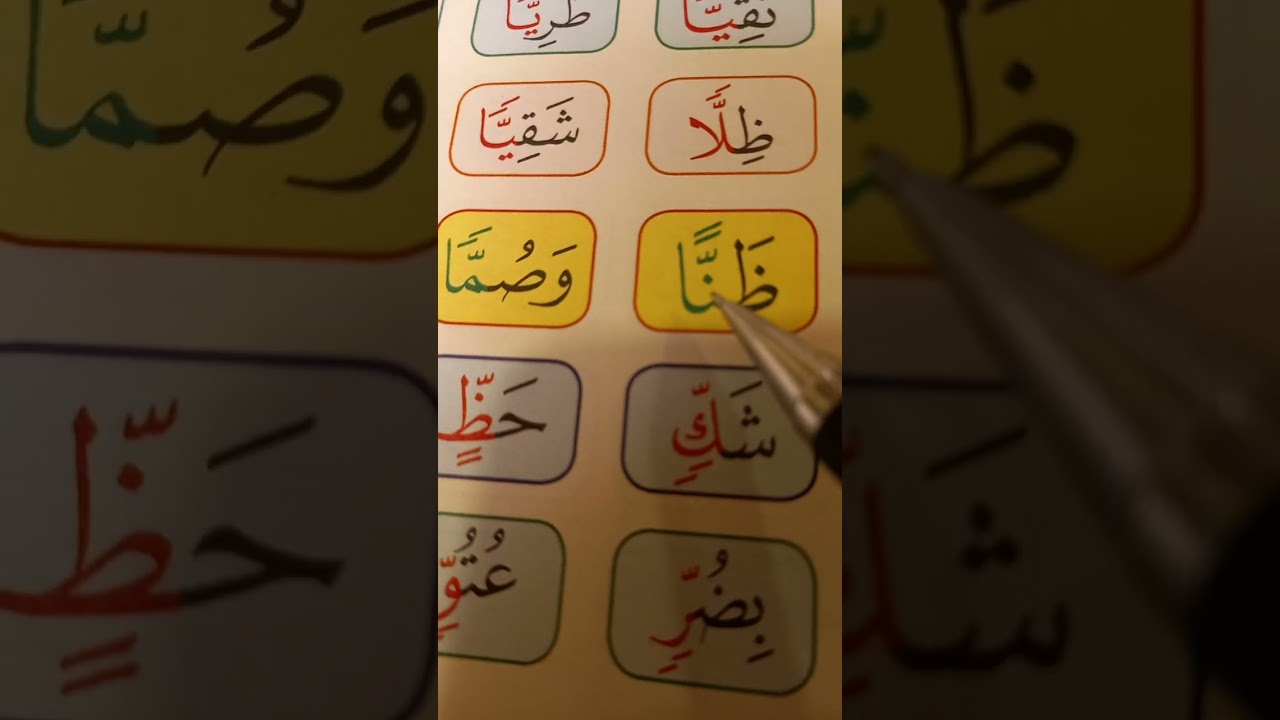 تَقِيًّا طَرِيًّا
ظِلًّا شَقِيًّا
ظَنًّا وَصُمًّا
شَكٍّ حَظٍّ
بِضُرٍّ عُتُوٍّ